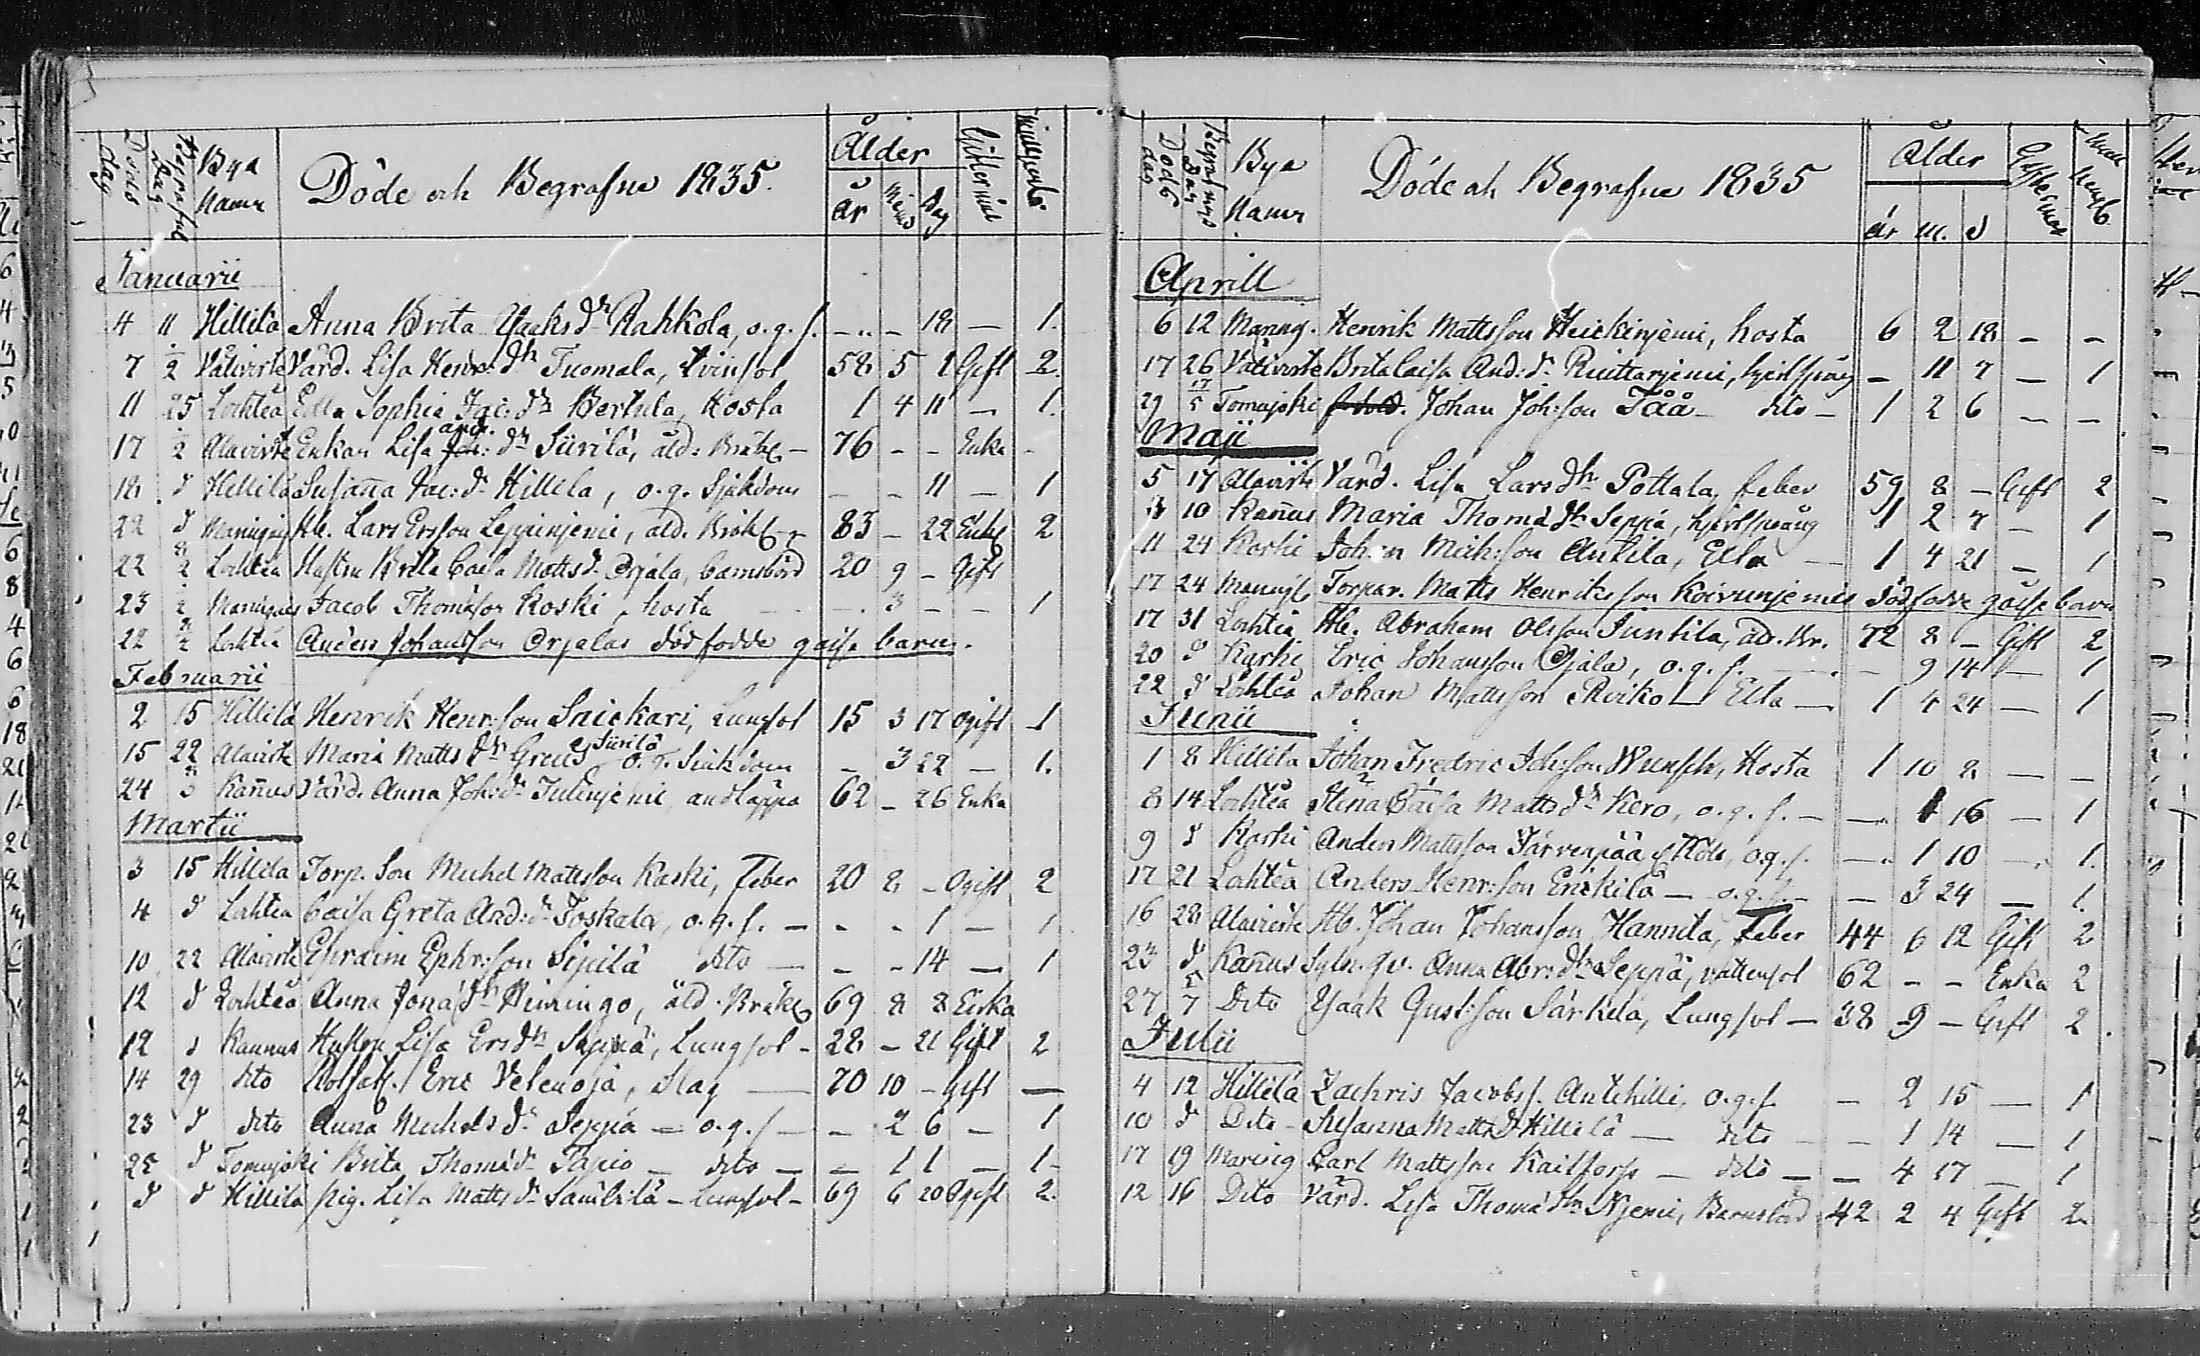 Döde och Begrafne 1835.
Bya Namn
Ålder
år
Januarii
4 11 Hillilä Anna Brita Isaks dr Rahkola, o.g.s. 18 1.
7 Vård. Lisa Henr. dtr Tuomala, tvinsot 58 5 1 Gift 2.
11 25 Lochteå Ella Sophia Jac: dr Bertula, Hosta 1 4 11 1.
17 Alaviste Enkan Lisa And. dr Siirilä, åld: Bräkl 76 Enka
18 d Hillilä Susanna Jac: dr Hillila, o.g. Sjukdom 11 1
22 d Hb. Lars Ersson Leppinjemi, åld. Bräkl 83 22 Enkl 2
22 Lochteå Hustru Brita Caisa Matts dr Orjala, barnsbörd 20 9 Gift
23 Jacob Thomasson Koski, hosta 3 1
22 Lochteå Anders Johansson Orjalas dödfödde gåsse barn.
Februarii
2 15 Hillilä Henrik Henr: son Snickari, Lungsot 15 3 17 Ogift 1
15 22 Alaviste Maria Matts dr Siirilä o.g. Siukdom 3 22 1.
24 Kannus Vård. Anna Joh: dr Julinjemi, andtäppa 62 26 Enka
Martii
3 15 Hillilä Torp. Son Michel Mattsson Kaski, Feber 20 8 Ogift 2
4 d Lochteå Caisa Greta And: dr Joskala, o.g.s. 1 1
10 22 Alaviste Ephraim Ephr: son Sipilä dito 14 1
12 d Lochteå Anna Jona dr Huiningo, åld. Bräkl 69 8 8 Enka
12 d Kannus Hustru Lisa Ers dtr Seppä, Lungsot 28 21 Gift 2
14 29 dito Eric Velenoja, Slag 70 10 Gift
23 d dito Anna Michels dr Seppä o.g.s 2 6 1
25 d Tomujoki Brita Thoma dr Tapio dito 1 1 1
d d Hillilä pig. Lisa Matts dr Lungsot 69 6 20 Ogift 2.
Döde och Begrafne 1835
Bya Namn
Ålder
år m. d
Aprill
6 12 Henrik Mattsson Heickinjemi, hosta 6 2 18
17 26 Brita Caisa And: dr 11 7 1
29 Tomujoki Johan Joh: son Tåå dito 1 2 6
Maji
5 17 Alaviste Vård. Lisa Lars dtr Pottala, feber 59 8 Gift 2
10 Kannus Maria Thoma dr Seppä, hjertsprång 1 2 7 1
11 24 Korhi Johan Mich: son Anttila, Elta 1 4 21 1
17 24 Torpar. Matts Henriksson Koivunjemis dödfödde gåsse barn
17 31 Lochteå Hb. Abraham Olsson Juntila, åd. Br. 72 8 Gift 2
20 d Eric Johansson Ojala, o.g.s. 9 14 1
22 d Lochteå Johan Mattsson Elta 1 4 24 1
Junii
1 8 Hillilä Johan Fredric Johsson Wunsch, Hosta 1 10 2
8 14 Lochteå Stina Caisa Matts dr Kero, o.g.s. 1 16 1
9 d Korhi Anders Mattsson Järvenpää o.g.s. 1 10 1.
17 21 Lochteå Anders Henr: son Erickilä o.g.s. 3 24 1.
16 28 Alaviste Hb. Johan Johansson Hannila, Feber 44 6 12 Gift 2
23 d Kannus Sytn. qv. Anna Abr: dr Seppä, vattensot 62 Enka 2
27 5/7 Dito Isaak Gust: son Särkilä, Lungsot 38 9 Gift 2.
Julii
4 12 Hillilä Zachris Jacobs s. Antihilli o.g.s 2 15 1
10 d Dito Susanna Matts d Hillilä dito 1 14 1
17 19 Carl Mattsson dito 4 17 1
12 16 Dito Vård. Lisa Thoma dtr Njemi, Barnsbörd 42 2 4 Gift 2.